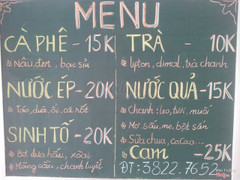 MENU
CÀ PHÊ - 15K
Nâu, đen, bạc sỉu
NƯỚC ÉP - 20K
Táo, dưa, ổi, cà rốt
SINH TỐ - 20K
Bơ, dưa hấu, xoài
Mãng cầu, chanh tuyết
TRÀ - 10K
Lipton, dimal, trà chanh
NƯỚC QUẢ - 15K
Chanh leo, tươi, muối
Mơ, sấu, me, bột sắn
Sữa chua, cacao...
Cam - 25K
ĐT: 3822.7652